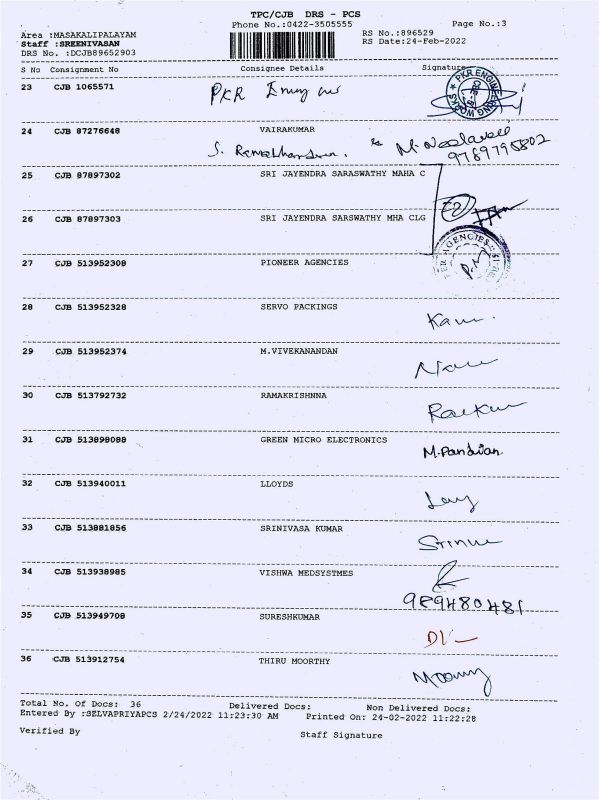 TPC/CJB DRS - PCS
Phone No.:0422-3505555
Page No.:3
Area :MASAKALIPALAYAM
RS No.:896529
Staff :SREENIVASAN
RS Date:24-Feb-2022
DRS No. :DCJB89652903
S No Consignment No Consignee Details Signature
23 CJB 1065571 PKR
PKR ENGINEERING WORKS
24 CJB 87276648 VAIRAKUMAR
S.
25 CJB 87897302 SRI JAYENDRA SARASWATHY MAHA C
26 CJB 87897303 SRI JAYENDRA SARSWATHY MHA CLG
AGENCIES
27 CJB 513952308 PIONEER AGENCIES
28 CJB 513952328 SERVO PACKINGS
29 CJB 513952374 M.VIVEKANANDAN
30 CJB 513792732 RAMAKRISHNNA
31 CJB 513898088 GREEN MICRO ELECTRONICS
M.Pandian.
32 CJB 513940011 LLOYDS
33 CJB 513881856 SRINIVASA KUMAR
34 CJB 513938985 VISHWA MEDSYSTMES
989480481
35 CJB 513949708 SURESHKUMAR
36 CJB 513912754 THIRU MOORTHY
Total No. Of Docs: 36 Delivered Docs: Non Delivered Docs:
Entered By :SELVAPRIYAPCS 2/24/2022 11:23:30 AM Printed On: 24-02-2022 11:22:28
Verified By Staff Signature